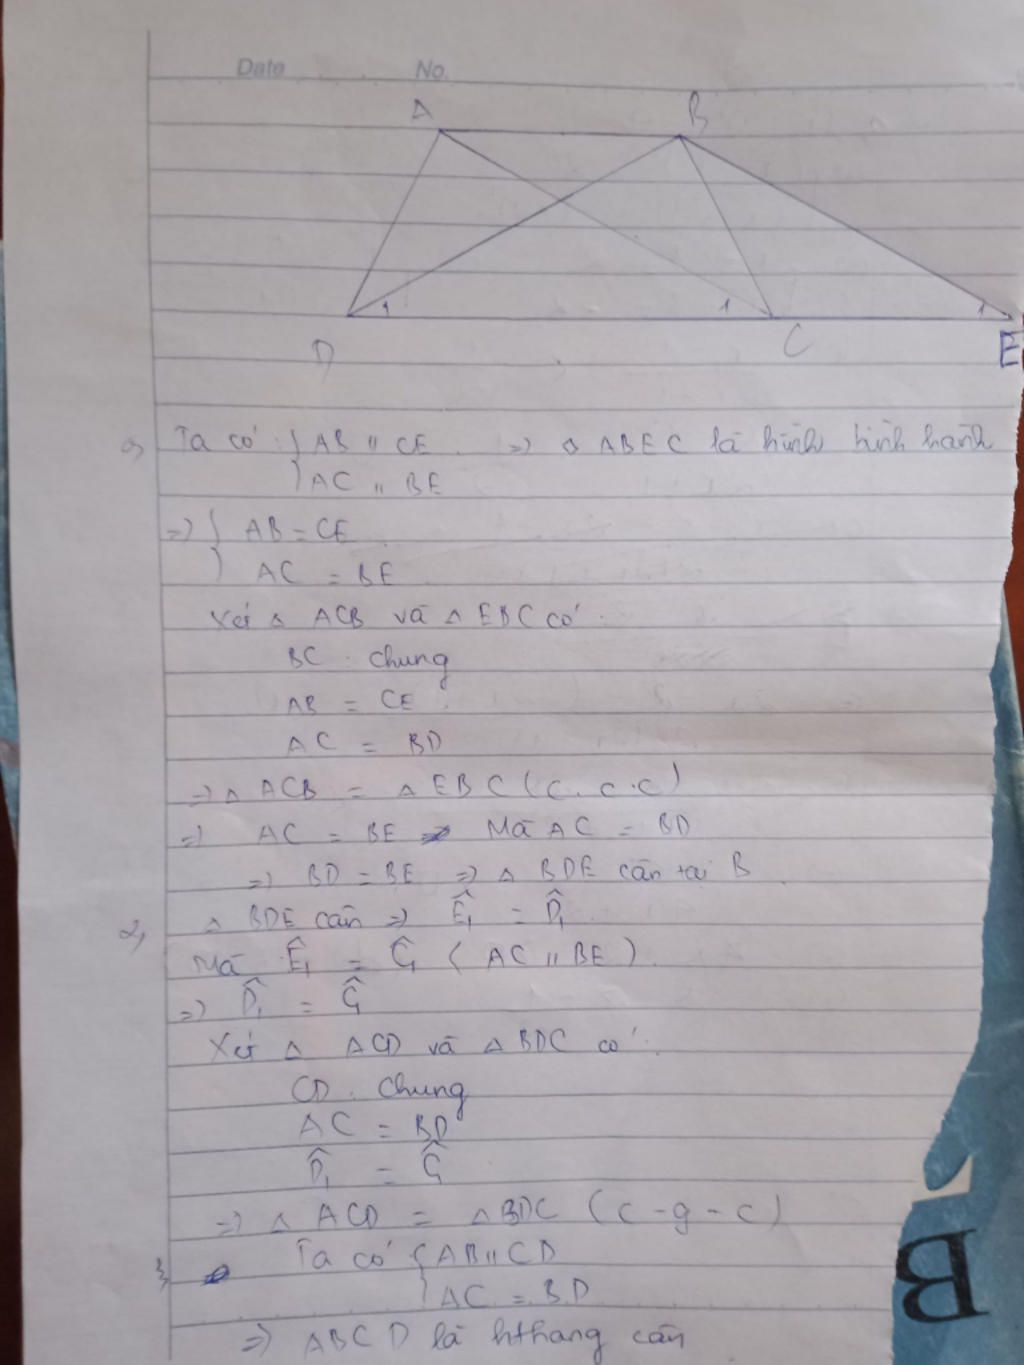 Date No.
A B
1 1 1
D C E
a, Ta có: { AB // CE => △ ABEC là hình bình hành
AC // BE
=> { AB = CE
AC = BE
Xét △ ACB và △ EBC có:
BC chung
AB = CE
AC = BD
=> △ ACB = △ EBC (c.c.c)
=> AC = BE Mà AC = BD
=> BD = BE => △ BDE cân tại B
2, △ BDE cân => Ê₁ = D̂₁
Mà Ê₁ = Ĉ₁ (AC // BE)
=> D̂₁ = Ĉ₁
Xét △ ACD và △ BDC có:
CD chung
AC = BD
D̂₁ = Ĉ₁
=> △ ACD = △ BDC (c-g-c)
3, Ta có { AB // CD
AC = BD
=> ABCD là hthang cân
B